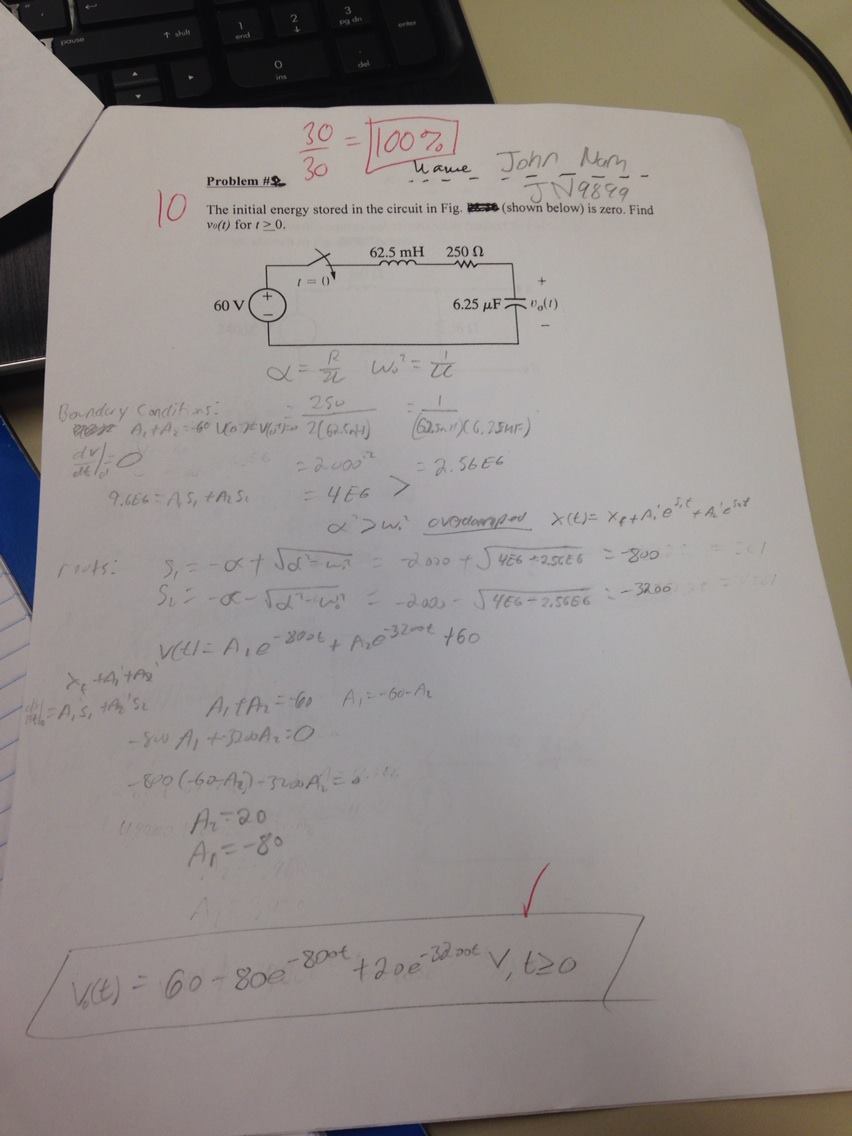 pause
↑ shift
1
end
2
↓
3
pg dn
enter
0
ins
.
del
30/30 = 100%
Name John Nam
JN9899
Problem #2
10
The initial energy stored in the circuit in Fig. (shown below) is zero. Find
v₀(t) for t ≥ 0.
62.5 mH 250 Ω
t = 0
60 V
+
−
6.25 μF
+
v₀(t)
−
α = R/2L ω₀² = 1/LC
Boundary Conditions:
= 250/2(62.5mH) = 1/(62.5mH)(6.25μF)
A₁+A₂ = -60
dv/dt = 0
= 2000² = 2.56E6
9.6E6 = A₁S₁ + A₂S₂ = 4E6 >
α² > ω₀² overdamped X(t) = X_f + A₁'e^{s₁t} + A₂'e^{s₂t}
roots: S₁ = -α + √α²-ω₀² = -2000 + √4E6-2.56E6 = -800
S₂ = -α - √α²-ω₀² = -2000 - √4E6-2.56E6 = -3200
V(t) = A₁e^{-800t} + A₂e^{-3200t} + 60
X_f + A₁' + A₂'
= A₁'S₁ + A₂'S₂
A₁+A₂ = -60 A₁ = -60-A₂
-800A₁ + -3200A₂ = 0
-800(-60-A₂) - 3200A₂ = 0
A₂ = 20
A₁ = -80
V₀(t) = 60 - 80e^{-800t} + 20e^{-3200t} V, t≥0